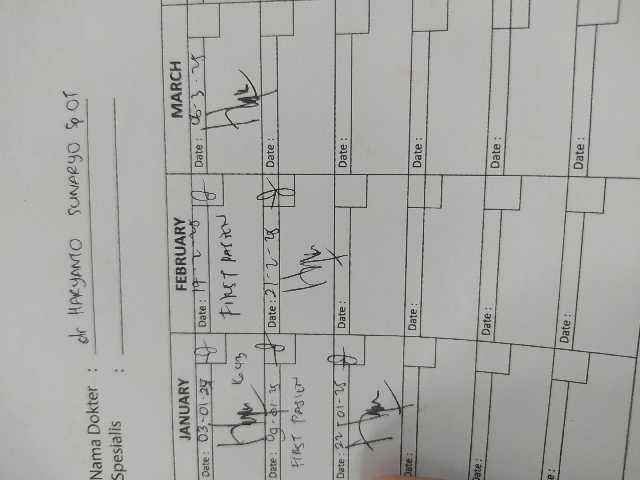 Nama Dokter : dr HARYANTO SUNARYO Sp OT
Spesialis :
JANUARY FEBRUARY MARCH
Date : 03-01-25 Date : 17-2-25 Date : 06-3-25
FIRST PASIEN
Date : 09-01-25 Date : 21-2-25 Date :
FIRST PASIEN
Date : 22-01-25 Date : Date :
Date : Date : Date :
Date : Date : Date :
Date : Date : Date :